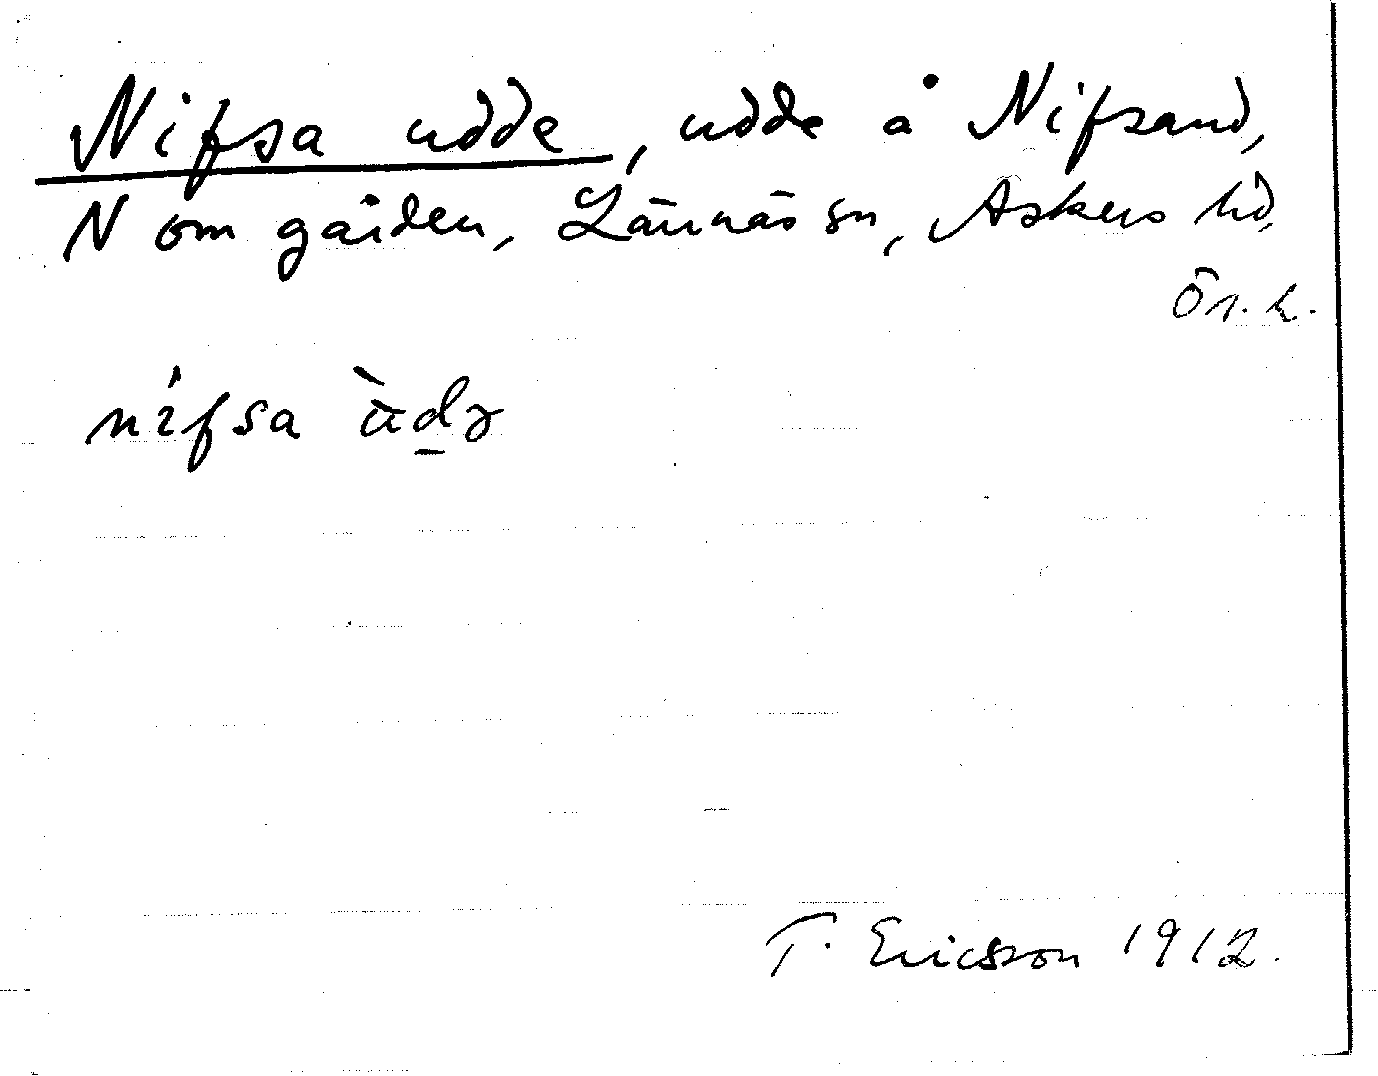 Nifsa udde, udde å Nifsand,
N om gården, Lännäs sn, Askers hd,
Ör. l.
nifsa ùdə
T. Ericsson 1912.